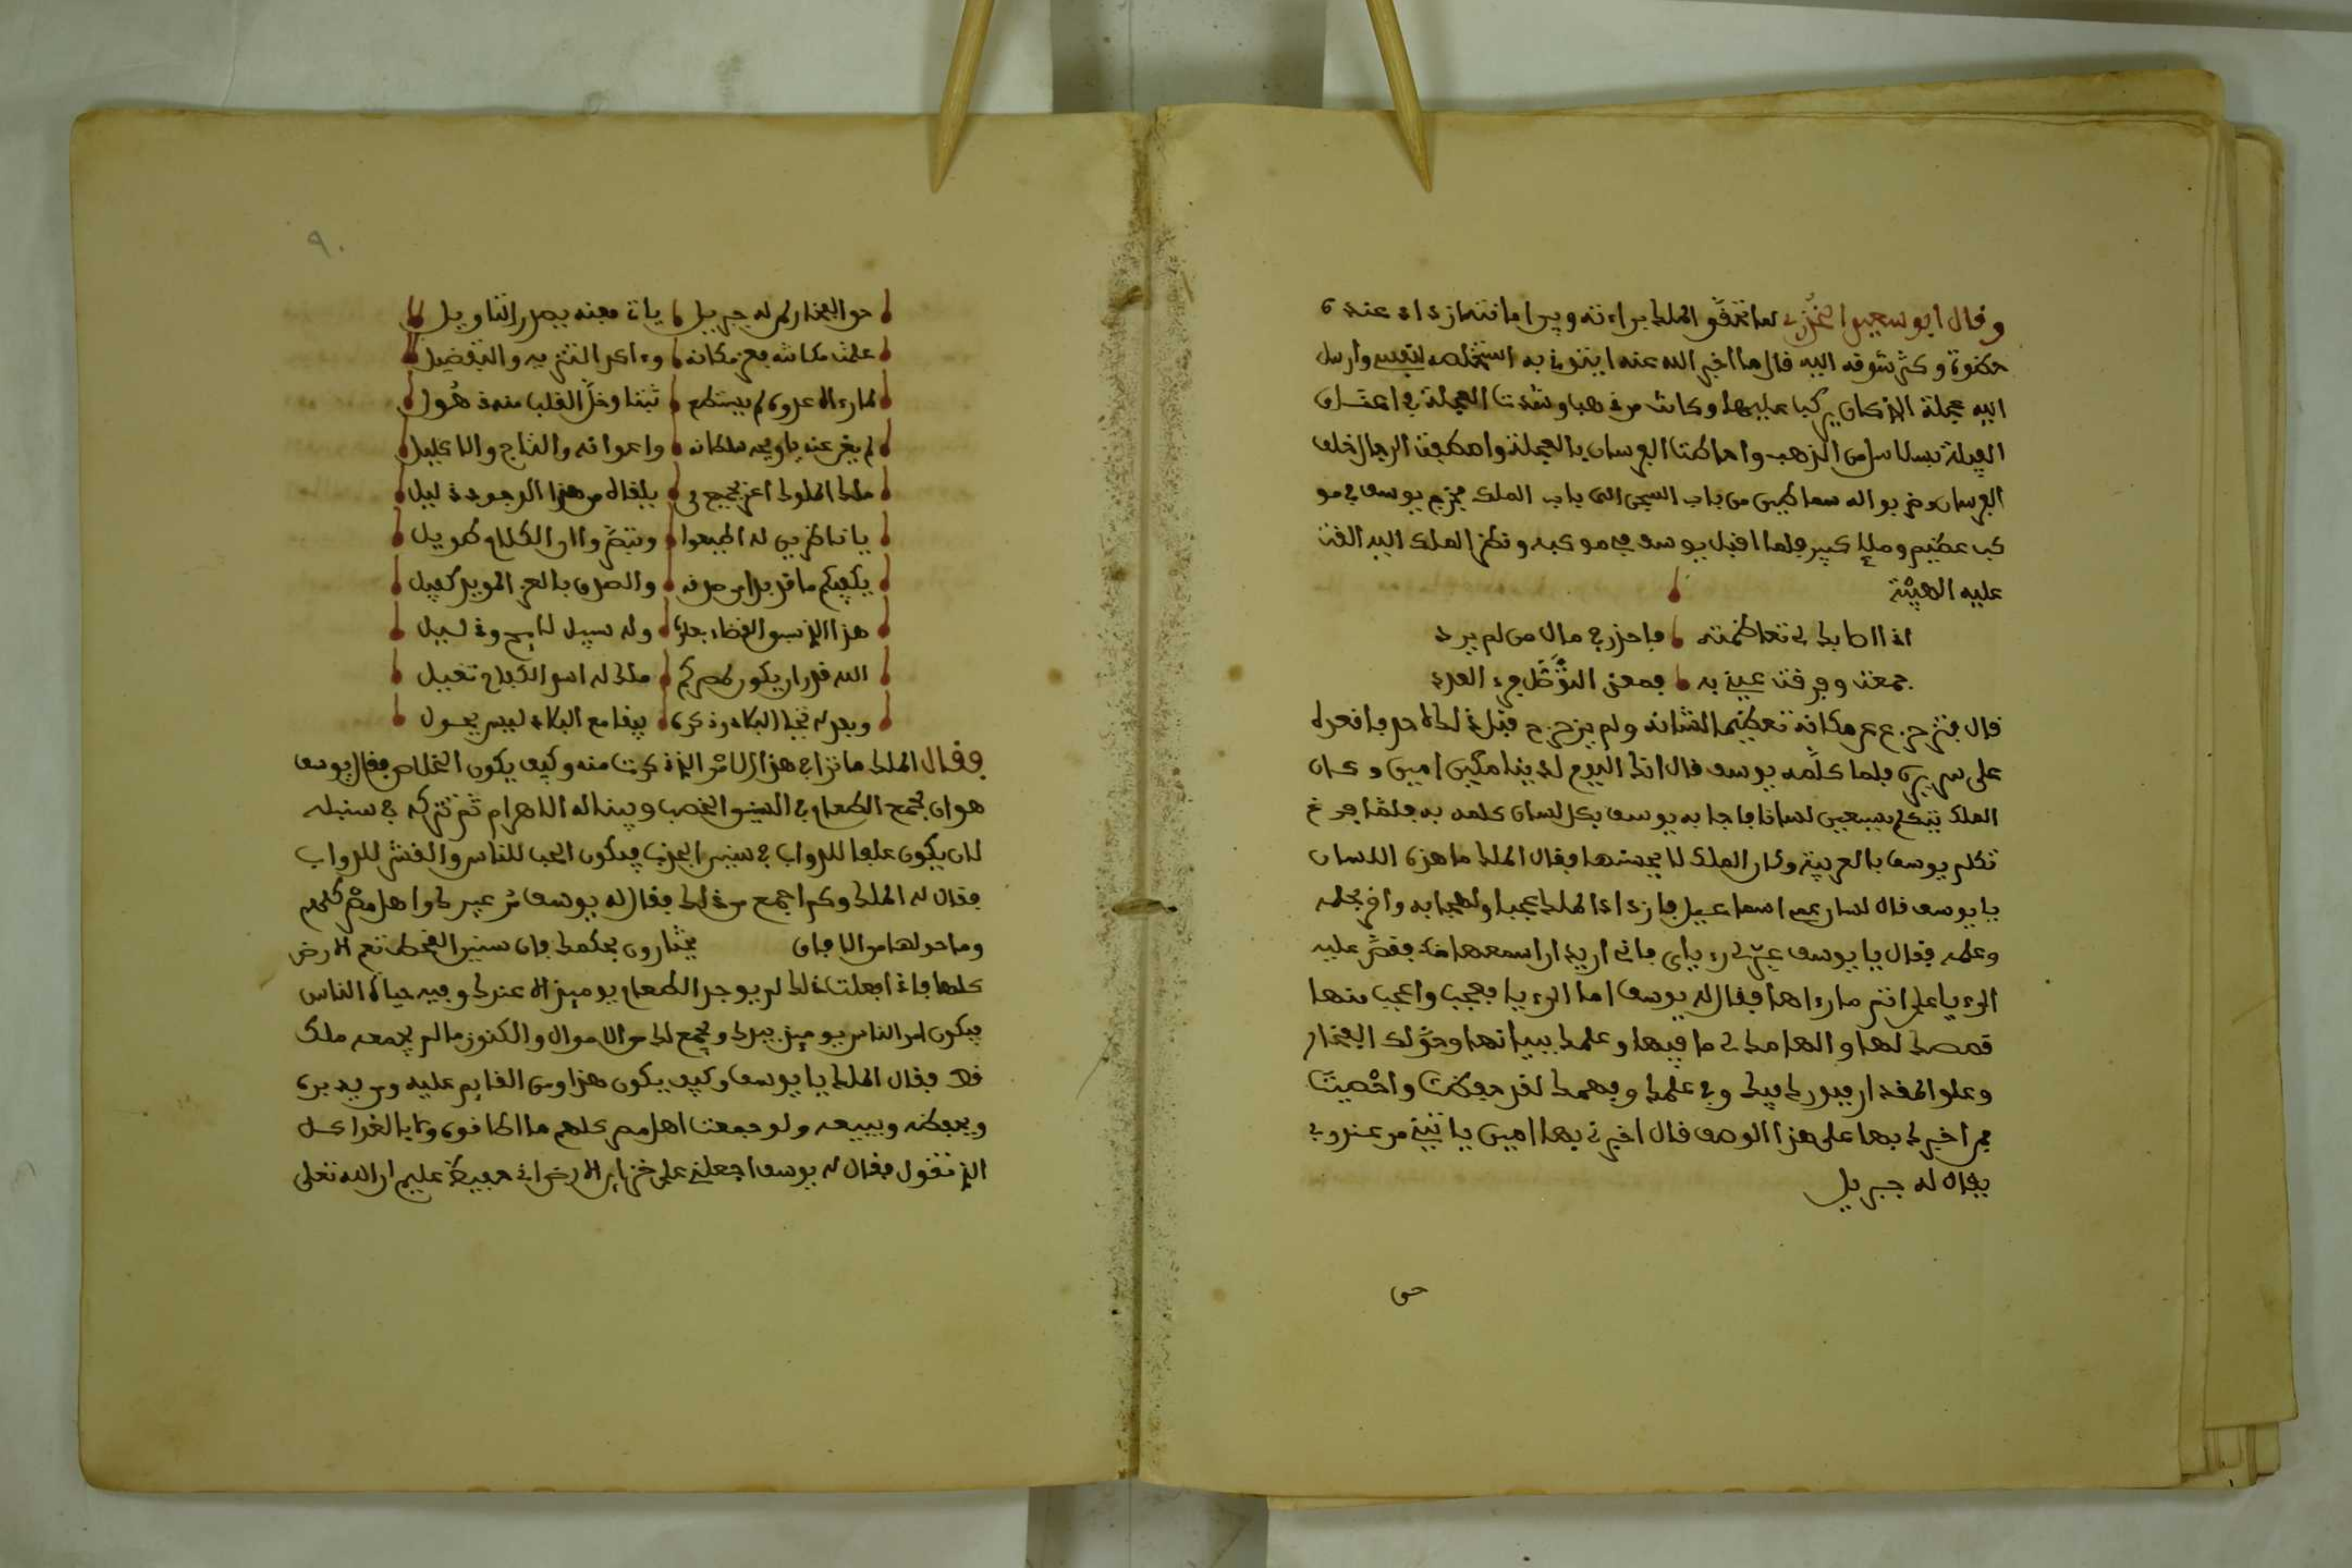 وقال ابو سعيد الخدري لما تحقق الملك براءته ويرا مانته ازداد عنده
حظوة وكثر شوقه اليه قال ما اخبر الله عنه ايتوني به استخلصه لنفسي وارسل
اليه عجلة الذ كان يركب عليها وكانت من ذهب وشدت العجلة في اعتـاق
الفيلة بسلاسل من الذهب واحاطت الفرسان بالعجلة واصطفت الرجال خلف
الفرسان وضربوا له سماطين من باب السجن الى باب الملك فخرج يوسف في مو
كب عظيم وملإ كبير فلما اقبل يوسف في موكبه ونظر الملك اليه القت
عليه الهيبة
اذا اطابك لي تعاظمته فاحذر في مال من لم يرد
جمعت وفرقت عيني به فمعنى التوصل فرد العدد
قال فتزحزح عن مكانه تعظيما لشانه ولم يزحزح قبل ذلك لاحد فاقعده
على سريره فلما كلمه يوسف قال انك اليوم لدينا مكين امين وكان
الملك يتكلم بسبعين لسانا فاجابه يوسف بكل لسان كلمه به فلما فرغ
تكلم يوسف بالعربية وكان الملك لا يحسنها فقال الملك ما هذه اللسان
يا يوسف قال لسان عمي اسماعيل فازداد الملك عجبا واعجابه واقر بحلمه
وعلمه فقال يا يوسف عبر لي رءياي فاني اريد ان اسمعها منك فقص عليه
الرءيا على اثر ما رءاها فقال له يوسف اما الرءيا فعجب واعجب منها
قصصك لها والهامك لي ما فيها وعلمك ببيانها وحق لك الفخار
وعلو المقدار فبورك فيك وفي علمك وفهمك لقد حفظت واحصيت
فمن اخبرك بها على هذا الوصف قال اخبرني بها امين ياتيني من عند ربي
يقال له جبريل
حق
٩٠
حق الفخار لمن له جبريل ياتي فعنه يصدر التاويل
علت مكانته فعز مكانه وءاكد التنزيه والتفضيل
لما رءاه عدوه لم يستطع ثبتا وخل القلب منه ذهول
لم يغن عنه يا ويحه سلطانه واعوانه والتاج والاكليل
ملك الملوك اعز بجمع في يلقاه من هذا الوجود ذليل
يا ناظرين له اطيعوا وتبصروا ان الكلام طويل
يكفيكم ما قد بدا من صدقه والصدق بالعز المويد كفيل
هذا الذ سبق القضاء بعلوه وله سبيل لايح ودليل
الله قدر ان يكون لمصركم ملك له اسو الكلام تغيل
وبعد له تخبا البكاء وذكره يبقا مع البكاء ليس يحول
وقال الملك ما ترا في هذا الامر الذ ذكرت منه وكيف يكون الخلاص فقال يوسف
هو ان تجمع الطعام في السنين الخصب ويبنا له الاهرام ثم تتركه في سنبله
لان يكون علفا للدواب في سنين الجدب فيكون الحب للناس والقشر للدواب
فقال له الملك وكم اجمع من ذلك فقال له يوسف من عبيدك واهل مصر كلهم
وما حولها من الافاق يمتارون بحكمك فان سنين القحط تعم الارض
كلها فاذا فعلت ذلك لم يوجد الطعام يوميذ الا عندك وفيه حياة الناس
فيكون امر الناس يوميذ بيدك ويجمع لك من الاموال والكنوز ما لم يجمعه ملك
قط فقال الملك يا يوسف وكيف يكون هذا ومن القايم عليه ومن يدبره
ويحفظه ويبيعه ولو جمعت اهل مصر كلهم ما اطاقوه وما بالغوا كل
الذ تقول فقال له يوسف اجعلني على خزاين الارض اني حفيظ عليم ان الله تعلى